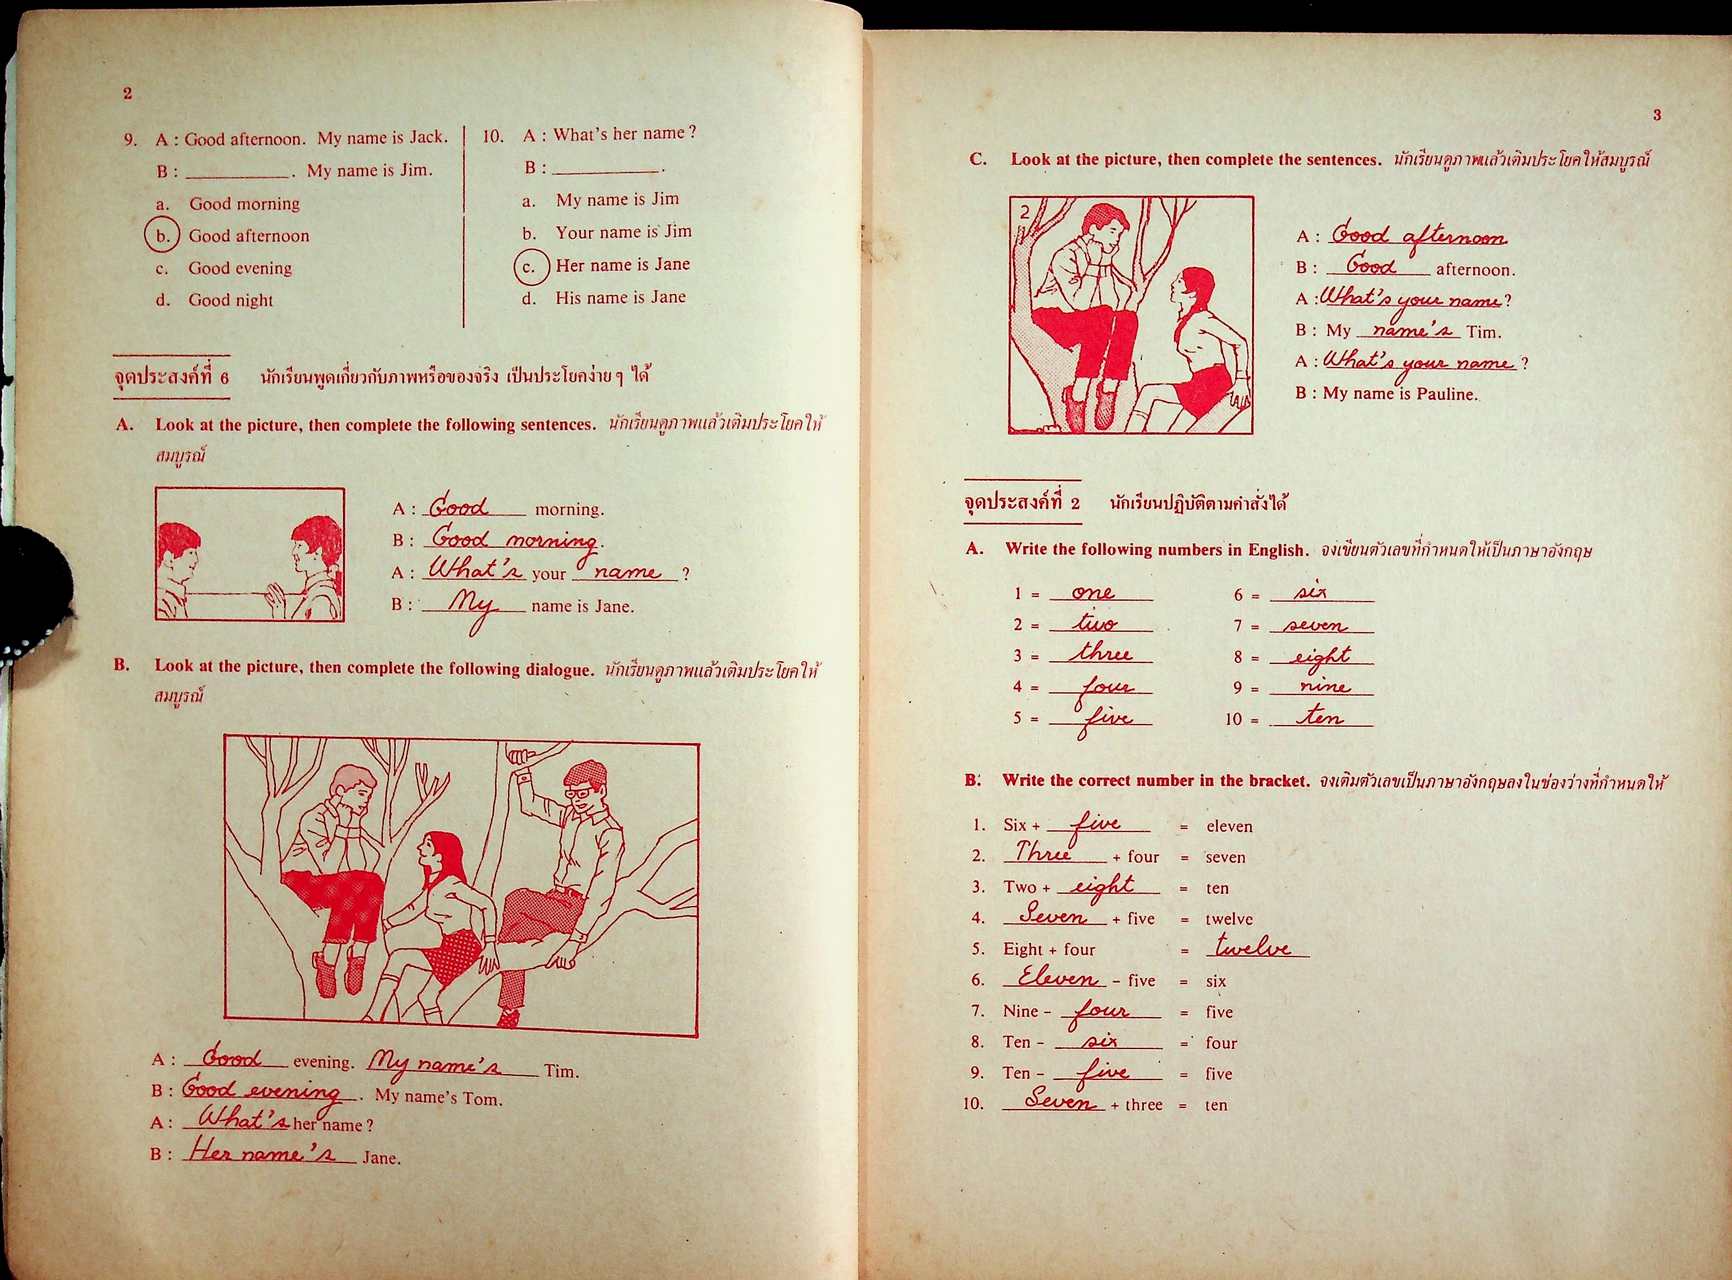 2
9. A : Good afternoon. My name is Jack.
B : ____________ . My name is Jim.
a. Good morning
b. Good afternoon
c. Good evening
d. Good night
10. A : What's her name?
B : ____________ .
a. My name is Jim
b. Your name is Jim
c. Her name is Jane
d. His name is Jane
จุดประสงค์ที่ 6 นักเรียนพูดเกี่ยวกับภาพหรือของจริง เป็นประโยคง่าย ๆ ได้
A. Look at the picture, then complete the following sentences. นักเรียนดูภาพแล้วเติมประโยคให้
สมบูรณ์
A : Good morning.
B : Good morning.
A : What's your name ?
B : My name is Jane.
B. Look at the picture, then complete the following dialogue. นักเรียนดูภาพแล้วเติมประโยคให้
สมบูรณ์
A : Good evening. My name's Tim.
B : Good evening . My name's Tom.
A : What's her name?
B : Her name's Jane.
3
C. Look at the picture, then complete the sentences. นักเรียนดูภาพแล้วเติมประโยคให้สมบูรณ์
2
A : Good afternoon
B : Good afternoon.
A : What's your name?
B : My name's Tim.
A : What's your name ?
B : My name is Pauline.
จุดประสงค์ที่ 2 นักเรียนปฏิบัติตามคำสั่งได้
A. Write the following numbers in English. จงเขียนตัวเลขที่กำหนดให้เป็นภาษาอังกฤษ
1 = one
2 = two
3 = three
4 = four
5 = five
6 = six
7 = seven
8 = eight
9 = nine
10 = ten
B. Write the correct number in the bracket. จงเติมตัวเลขเป็นภาษาอังกฤษลงในช่องว่างที่กำหนดให้
1. Six + five = eleven
2. Three + four = seven
3. Two + eight = ten
4. Seven + five = twelve
5. Eight + four = twelve
6. Eleven - five = six
7. Nine - four = five
8. Ten - six = four
9. Ten - five = five
10. Seven + three = ten